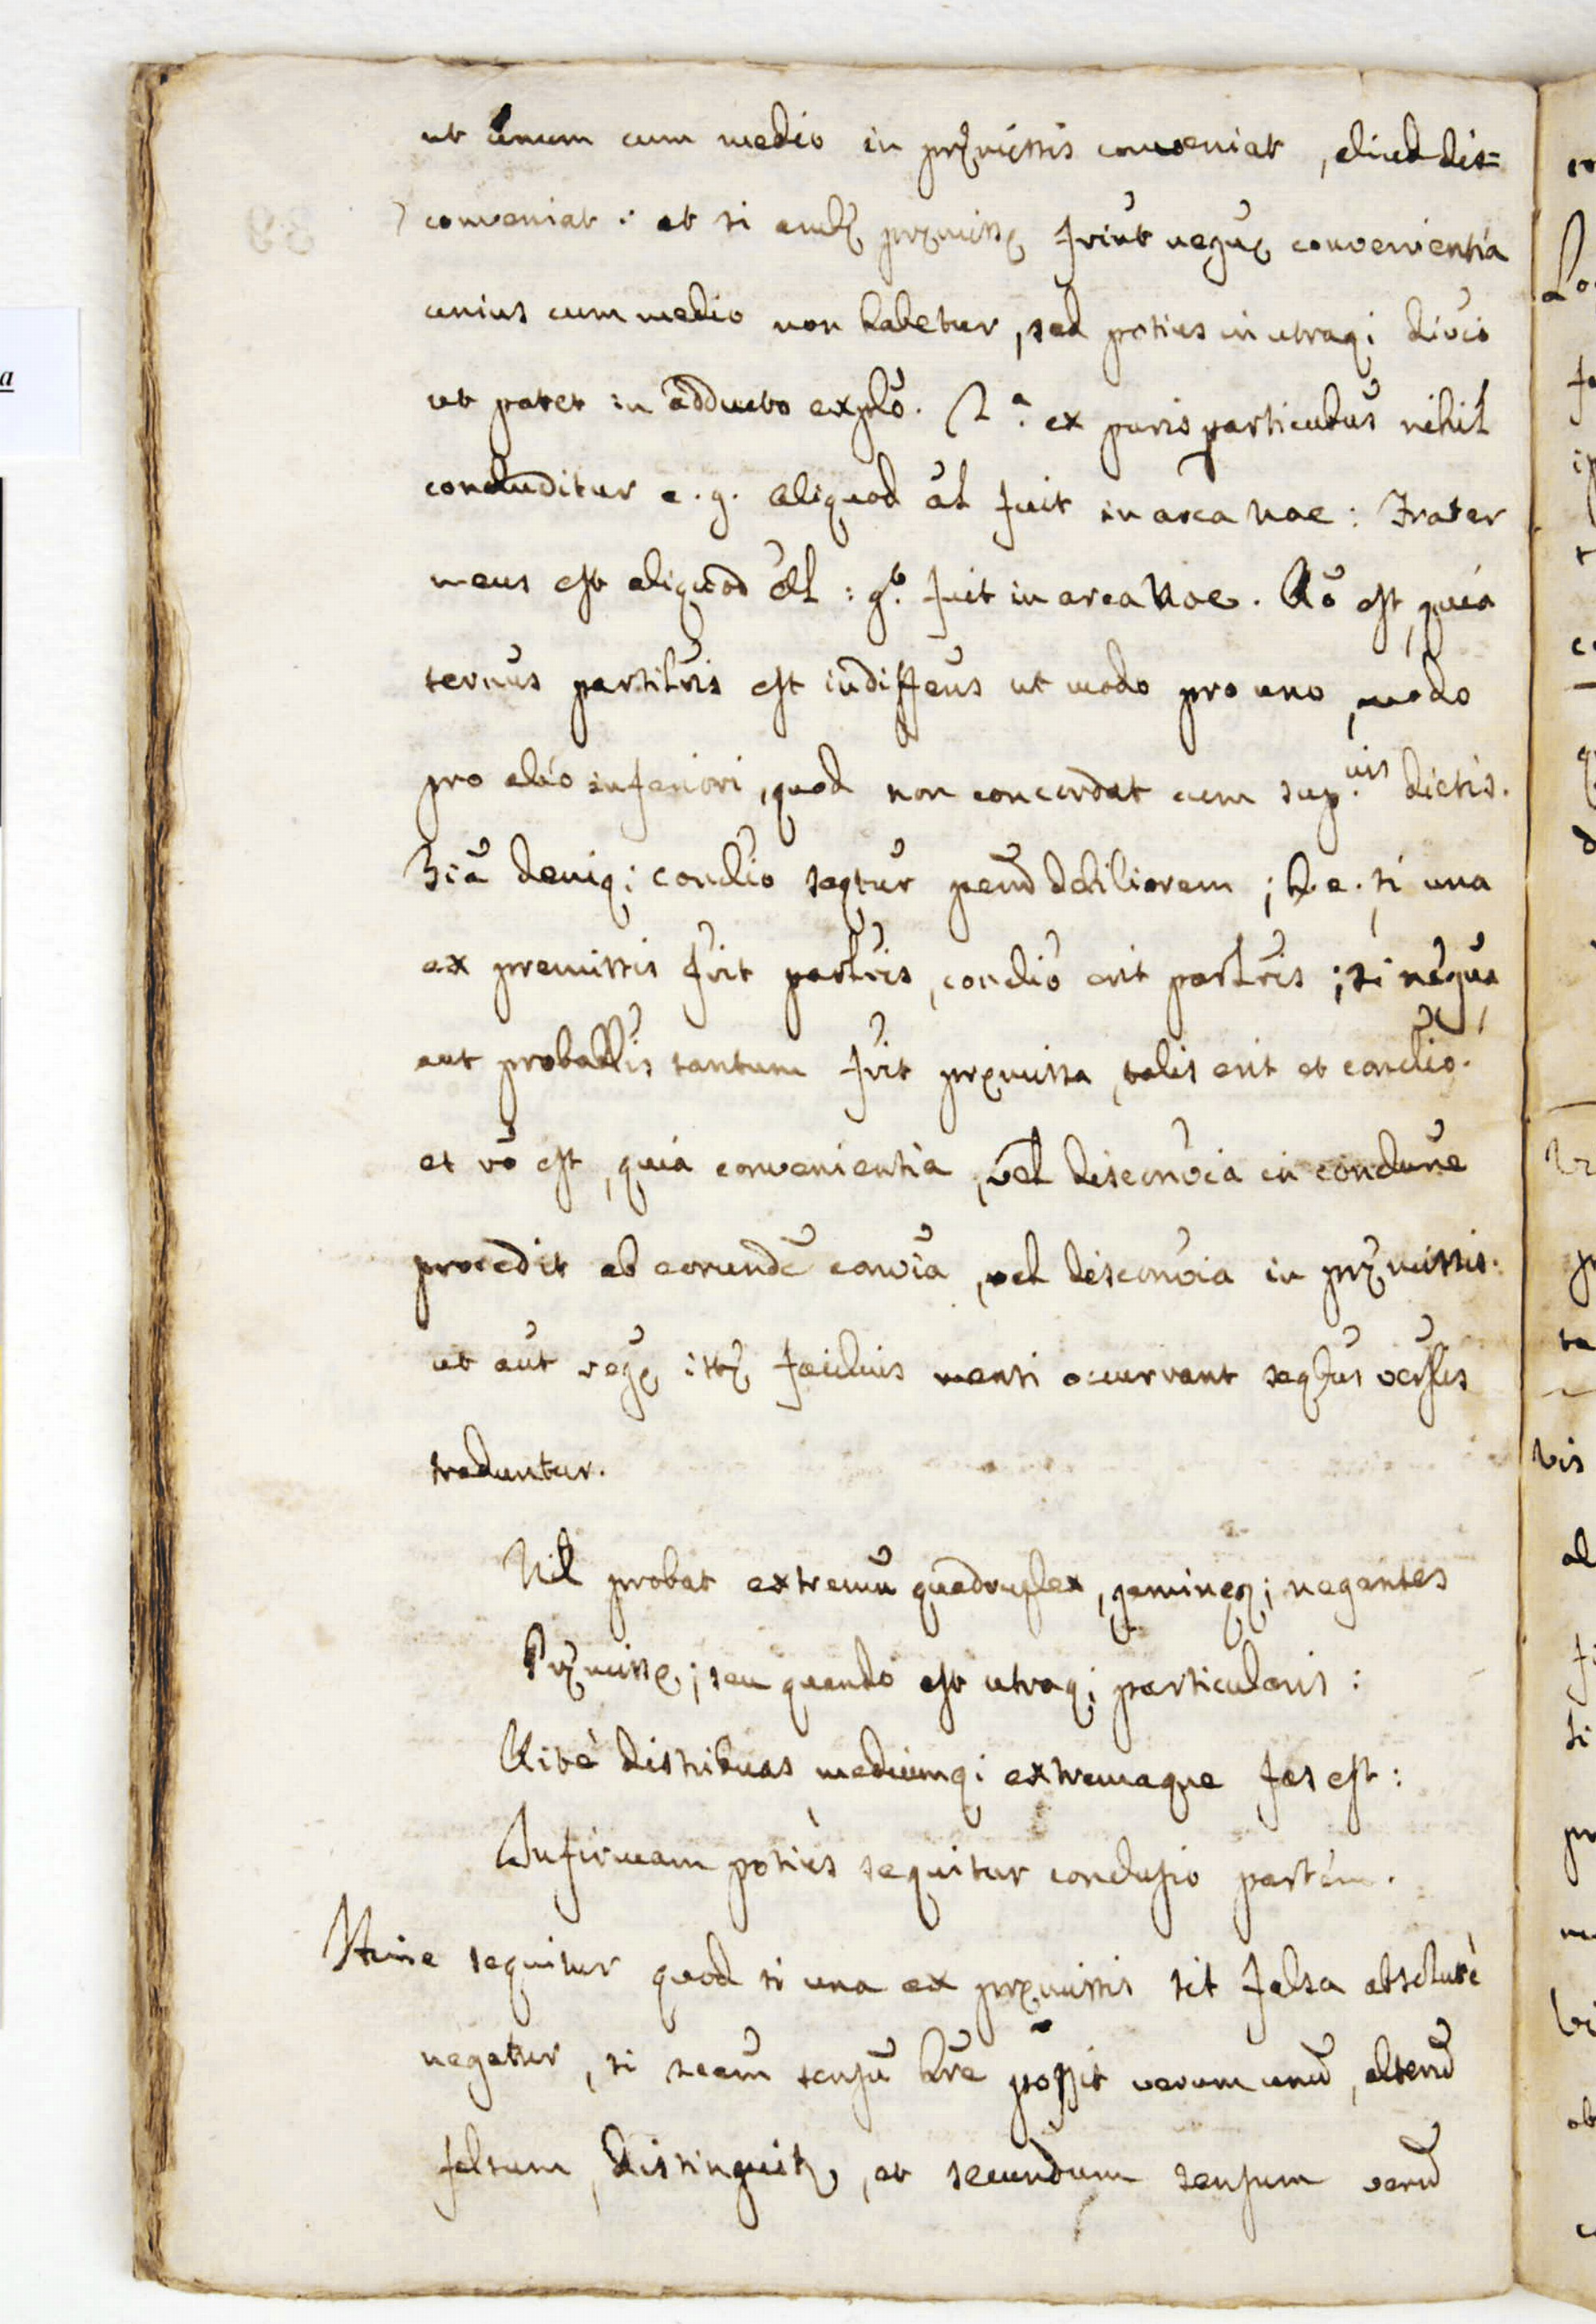 ut unum cum medio in pręmissis conveniat, aliud dis=
conveniat: at si ambę pręmissę friũt negvę convenientia
unius cum medio non habetur, sed potius in utraq; divió
ut patet in adducto explõ. 2.ª ex puris particubus nihil
concluditur e. g. aliquod ãl fuit in arca Noe: Frater
meus est aliquod ãl: g.º fuit in arca Noe. Rõ est, quia
termũs partilris est indiffeñs ut modo pro uno, modo
pro alio inferiori, quod non concordat cum sup.ius dictis.
3iã deniq; conclio seqtur peñd debiliorem; h. e. si una
ex premissis frit partlris, conclio erit partlris; si negva
aut probabłis tantum frit pręmissa, talis erit et conclio.
et rõ est, quia convenientia, vel disconvia in conclune
procedit ab eorundē convia, vel disconvia in pręmissis.
ut aũt regę istę facilius menti occurrant seqbus versus
traduntur.
Nil probat extremũ quadruplex, geminęq; negantes
Pręmissę; seu quando est utraq; particularis:
Rite distribuas mediumq; extremaque fas est:
Infirmam potius sequitur conclusio partem.
Hinc sequitur quod si una ex pręmissis sit falsa absolutè
negatur, si secũm sensũ hre possit verum unũ, alterũ
falsum, distinguitr, et secundum sensum verũ